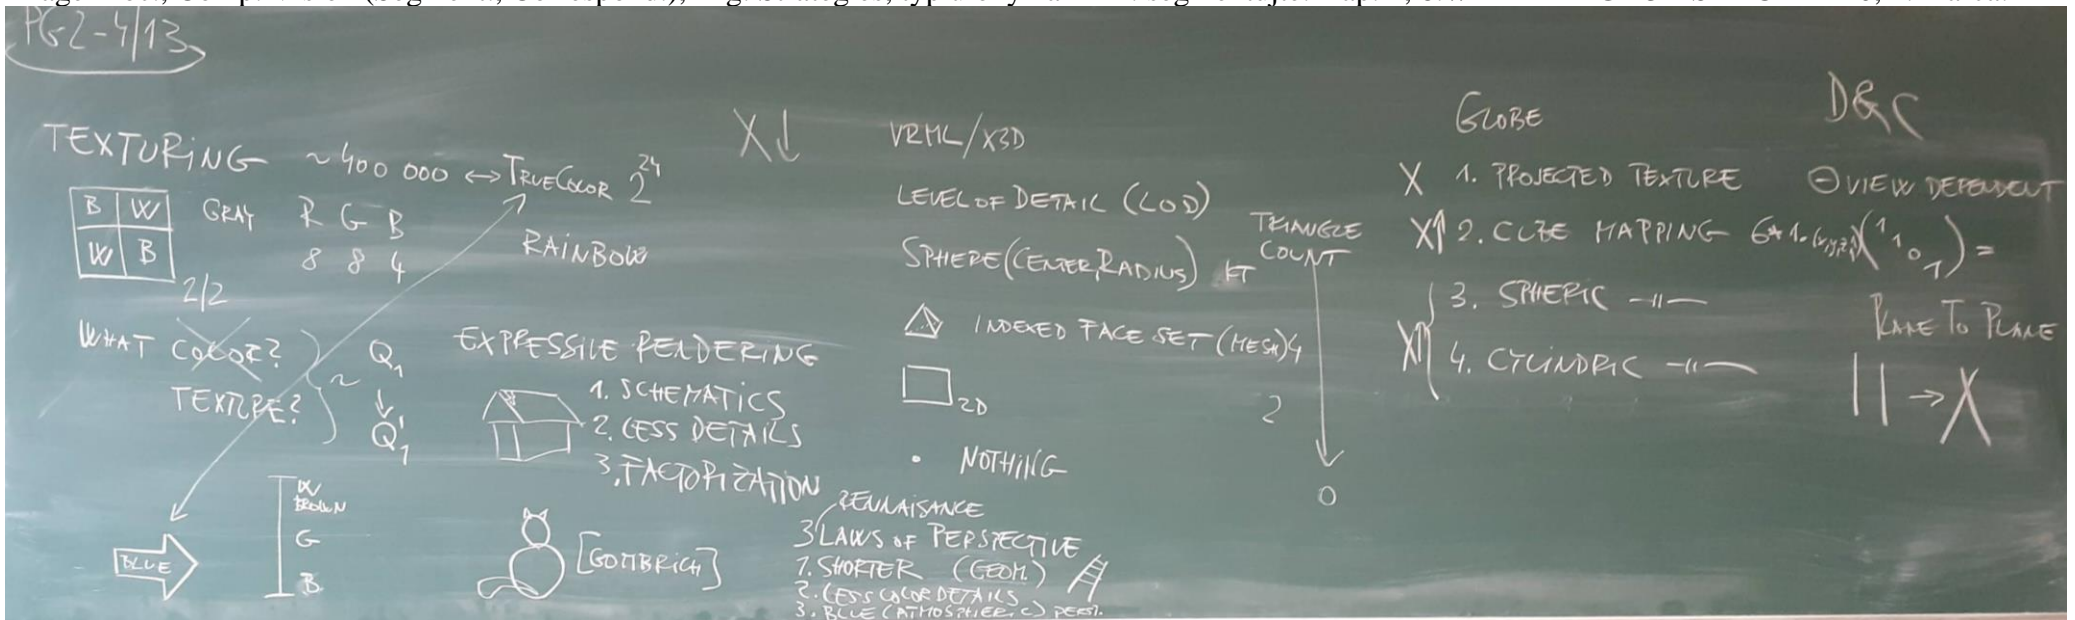 PG2-4/13
TEXTURING ~400 000 ↔ TRUECOLOR 2^24
B W
W B
GRAY R G B
8 8 4
2/2
RAINBOW
WHAT COLOR?
TEXTURE?
~
Q1
↓
Q1'
EXPRESSIVE RENDERING
1. SCHEMATICS
2. LESS DETAILS
3. FACTORIZATION
BLUE
W
BROWN
G
B
[GOMBRICH]
X↓
VRML/X3D
LEVEL OF DETAIL (LOD)
SPHERE(CENTER,RADIUS) KT
INDEXED FACE SET (MESH) 4
2D
2
• NOTHING
0
TRIANGLE
COUNT
RENNAISANCE
3 LAWS OF PERSPECTIVE
1. SHORTER (GEOM.)
2. LESS COLOR DETAILS
3. BLUE (ATMOSPHERIC) PERSP.
GLOBE
X 1. PROJECTED TEXTURE ⊖ VIEW DEPENDENT
X↑ 2. CUBE MAPPING 6*1. (x,y,z,1)(1 1 0 1) =
3. SPHERIC -||-
X↑ 4. CYLINDRIC -||-
D&C
PLANE TO PLANE
|| → X